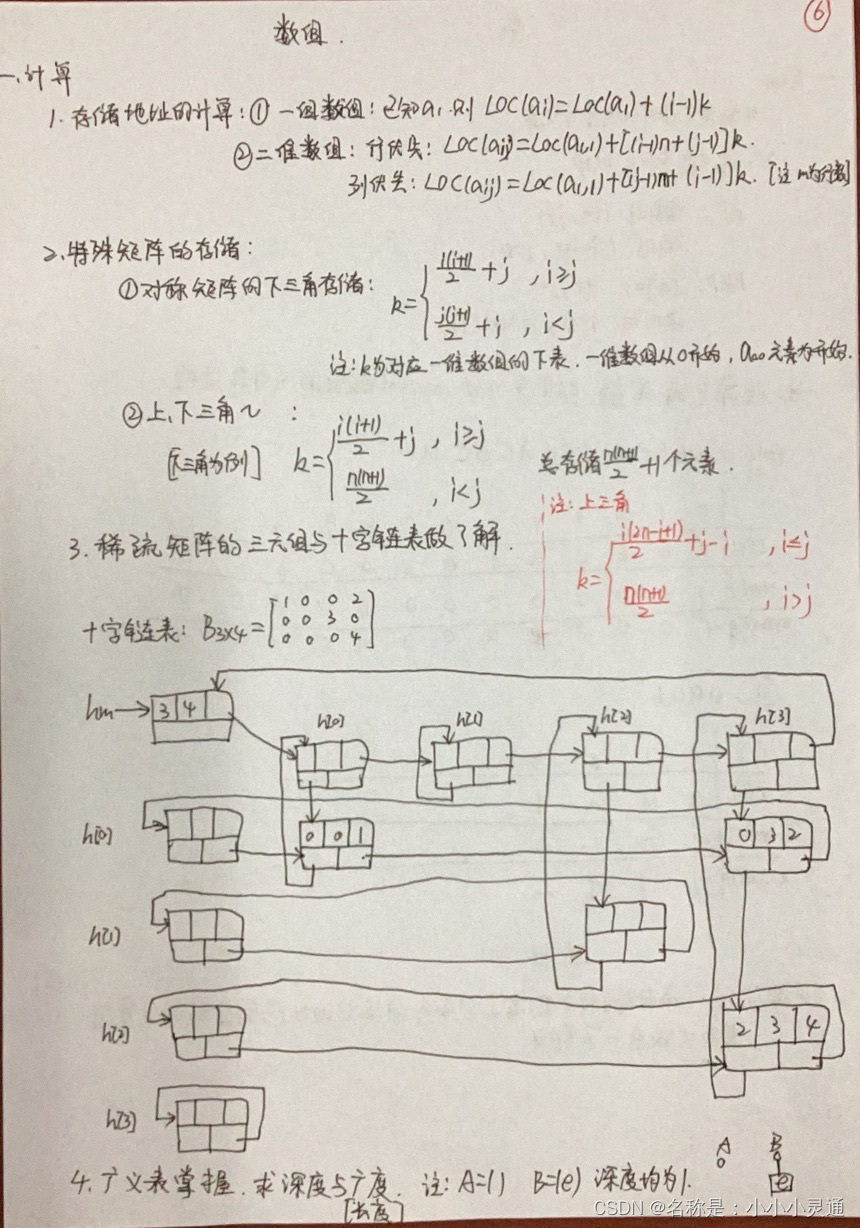 ⑥
数组.
一.计算
1.存储地址的计算:① 一组数组:已知a₁.则 LOC(ai)=Loc(a₁)+(i-1)k
②二维数组:行优先: LOC(aij)=Loc(a₁,₁)+[(i-1)n+(j-1)]k.
列优先:LOC(aij)=Loc(a₁,₁)+[(j-1)m+(i-1)]k. [注 m为行数]
2.特殊矩阵的存储:
①对称矩阵的下三角存储: k={ i(i+1)/2 +j , i≥j
j(j+1)/2 +i , i<j
注:k为对应一维数组的下表.一维数组从0开始,a₀₀元素为开始.
②上、下三角~ : k={ i(i+1)/2 +j , i≥j
[下三角为例] n(n+1)/2 , i<j
总存储 n(n+1)/2 +1个元素.
注:上三角
k={ i(2n-i+1)/2 +j-i , i≤j
n(n+1)/2 , i>j
3.稀疏矩阵的三元组与十字链表做了解.
十字链表: B3x4=[1 0 0 2
0 0 3 0
0 0 0 4]
hm 3 4
h[0] h[1] h[2] h[3]
h[0] 0 0 1 0 3 2
h[1]
h[2] 2 3 4
h[3]
A B
e
4.广义表掌握.求深度与广度. 注: A=() B=(e) 深度均为1.
[长度]
CSDN @名称是:小小小灵通